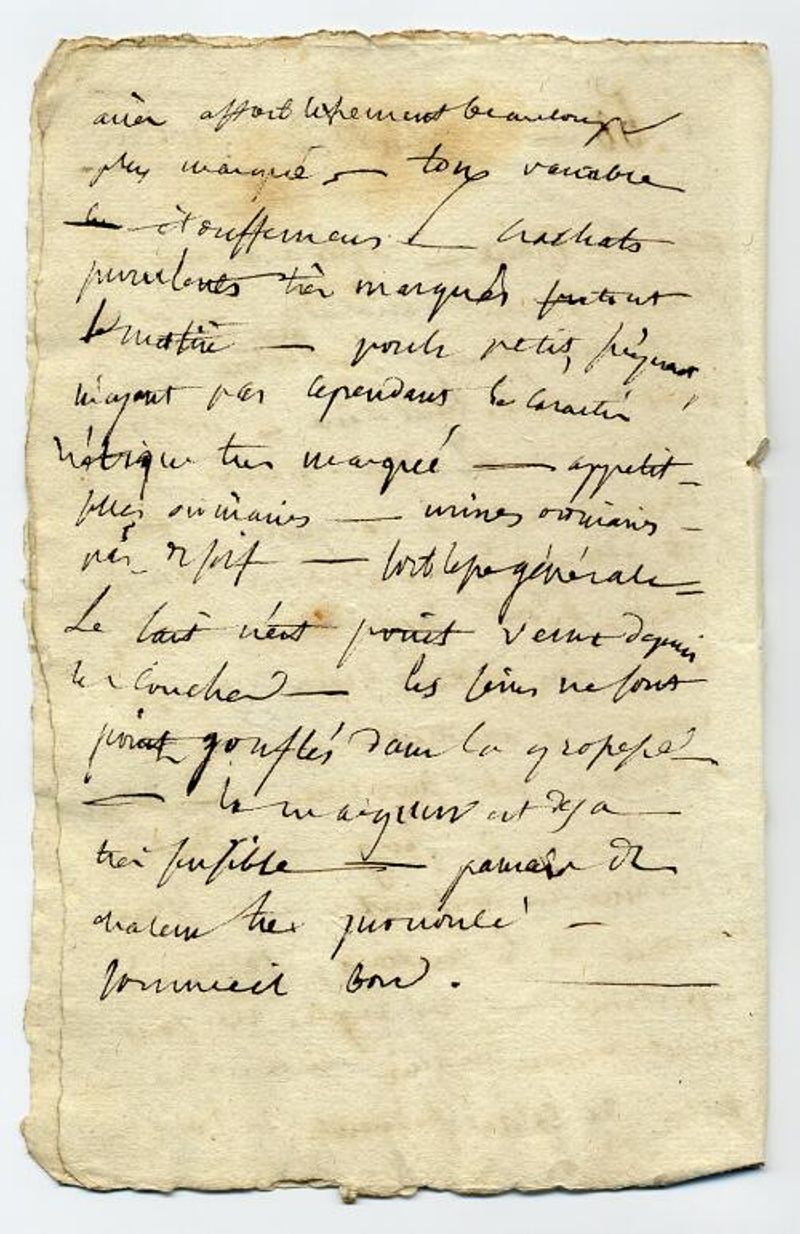 affoiblissement beaucoup
plus marqué — toux variable
étouffemens — crachats
purulents très marqués surtout
le matin — pouls petit, fréquent
n'ayant pas cependant le caractère
très marqué — appetit
urines ordinaires —
pas de soif — foiblesse générale
Le lait n'est point venu depuis
les couches — les seins ne sont
point gonflés dans la grossesse
— la maigreur est deja
très sensible — paumes de
chaleur très prononcé —
sommeil bon. —